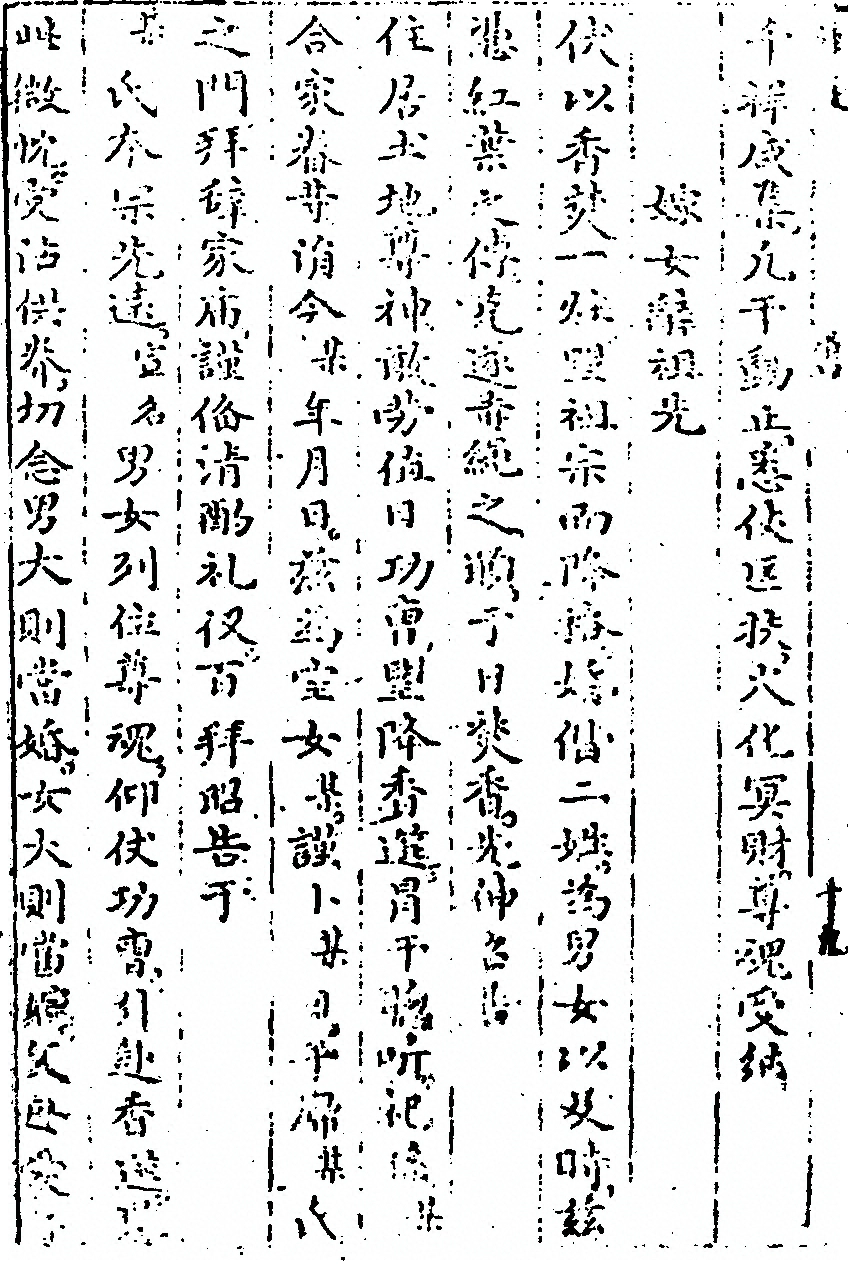 千祥咸集凡干動止悉伏匡扶火化冥財尊魂受納
嫁女辭祖先
伏以香焚一炷望祖宗而降格婚偕二姓為男女以及時兹
憑紅葉之傳竟遂赤繩之順于日焚香先伸召告
住居土地尊神敢勞值日功曹望降香筵冒干聰听祀後某
合家眷等涓今某年月日兹為室女某謹卜某日于歸某氏
之門拜辞家庙謹俻清酌礼仪百拜昭告于
某氏本宗先遠宣名男女列位尊魂仰伏功曹引赴香筵
此微忱受沾供养切念男大則當婚女大則當嫁父母